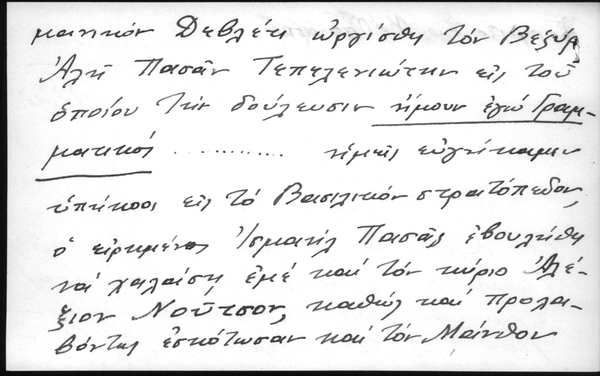 ματικόν Δεβλέτι ὠργίσθη τόν Βεζύρ
Ἀλῆ Πασᾶν Τεπελενιώτην εἰς τοῦ
ὁποίου τήν δούλευσιν ἤμουν ἐγώ Γραμ-
ματικός ............ ἡμεῖς εὐγήκαμεν
ὑπήκοοι εἰς τό Βασιλικόν στρατόπεδον,
ὁ εἰρημένος Ἰσμαήλ Πασᾶς ἐβουλήθη
νά χαλάσῃ ἐμέ καί τόν κύριο Ἀλέ-
ξιον Νοῦτσον, καθώς καί προλα-
βόντως ἐσκότωσαν καί τόν Μάνθον